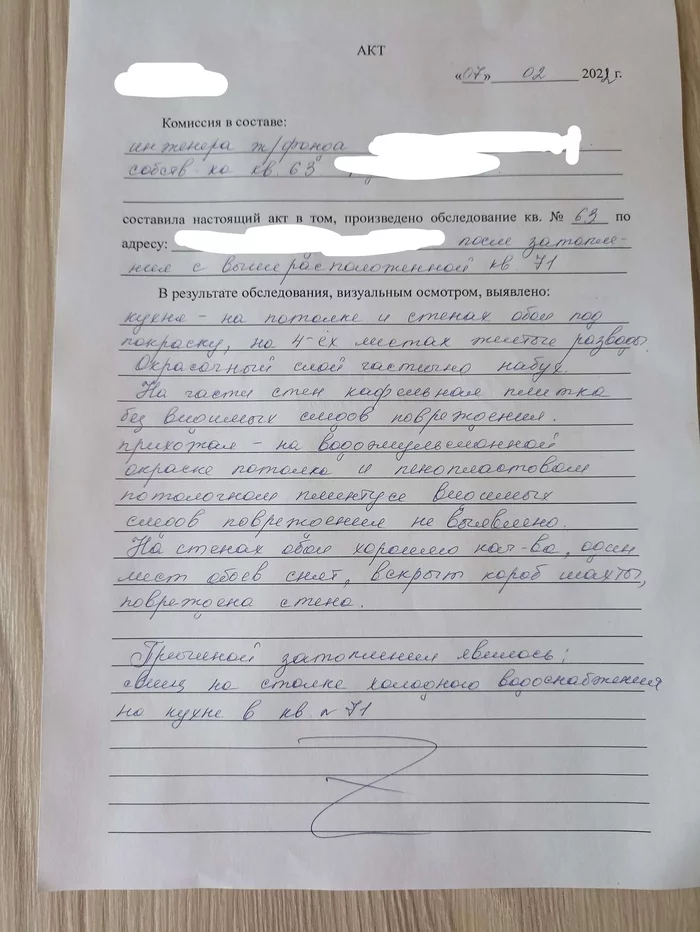 АКТ
«07» 02 2022 г.
Комиссия в составе:
инженера ж/фонда
собств-ка кв. 63
составила настоящий акт в том, произведено обследование кв. № 63 по
адресу: после затопле-
ния с вышерасположенной кв 71
В результате обследования, визуальным осмотром, выявлено:
кухня – на потолке и стенах обои под
покраску, на 4-ёх листах желтые разводы.
Окрасочный слой частично набух.
На части стен кафельная плитка
без видимых следов повреждения.
прихожая – на водоэмульсионной
окраске потолка и пенопластовом
потолочном плинтусе видимых
следов повреждения не выявлено.
На стенах обои хорошего кач-ва, один
лист обоев снят, вскрыт короб шахты,
повреждена стена.
Причиной затопления явилось:
свищ на стояке холодного водоснабжения
на кухне в кв. № 71